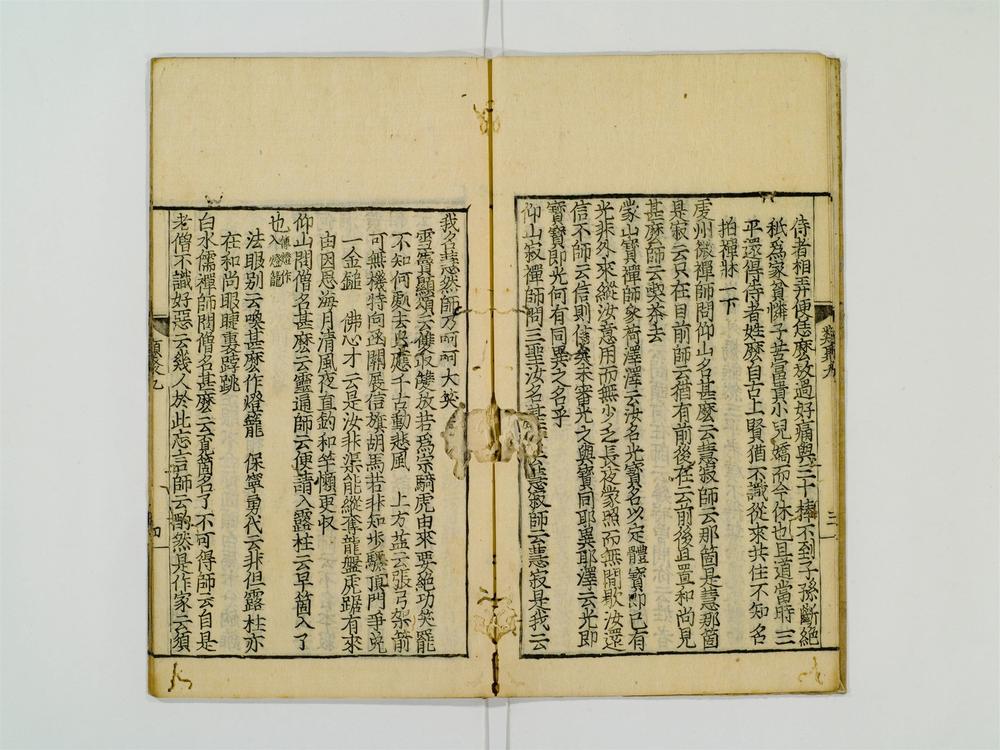 侍者相弄便恁麼放過好痛與三十棒不到子孫斷絕
秪爲家貧憐子苦富貴小兒嬌而今休也且道當時三
平還得侍者姓麼自古上賢猶不識從來共住不知名
拍禪牀一下
虔州微禪師問仰山名甚麼云慧寂師云那箇是慧那箇
是寂云只在目前師云猶有前後在云前後且置和尚見
甚麼師云喫茶去
蒙山寶禪師參荷澤澤云汝名光寶名以定體寶即已有
光非外求縱汝意用而無少乏長夜蒙照而無間歇汝還
信不師云信則信矣未審光之與寶同耶異耶澤云光即
寶寶即光何有同異之名乎
仰山寂禪師問三聖汝名甚麼云慧寂師云慧寂是我云
我名慧然師乃呵呵大笑
雪竇顯頌云雙收雙放若爲宗騎虎由來要絕功笑罷
不知何處去只應千古動悲風　上方益云張弓架箭
可無機特向函關展信旗胡馬若非知步驟頂門爭免
一金鎚　佛心才云是汝非渠能縱奪龍盤虎踞有來
由因思海月清風夜直釣和竿懶更収
仰山問僧名甚麼云靈通師云便請入露柱云早箇入了
也傳燈作入燈籠
法眼別云喚甚麼作燈籠　保寧勇代云非但露柱亦
在和尚眼睫裏𨁝跳
白水儒禪師問僧名甚麼云覓箇名了不可得師云自是
老僧不識好惡云幾人於此忘言師云酌然是作家云須